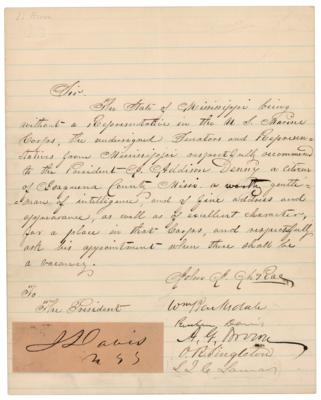 Sir
The State of Mississippi being
without a Representative in the U. S. Marine
Corps, the undersigned Senators and Represen-
tatives from Mississippi respectfully recommend
to the President Addison Denny a citizen
of Issaquena County Miss. a gentle-
man of intelligence, and of fine address and
appearance, as well as of excellent character,
for a place in that Corps, and respectfully
ask his appointment when there shall be
a vacancy.
John J. McRae
To
The President
Wm Barksdale
Reuben Davis
A. G. Brown
O. R. Singleton
L. Q. C. Lamar
J Davis
U S S